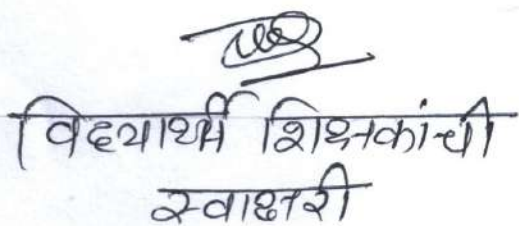 विद्यार्थी शिक्षकांची
स्वाक्षरी